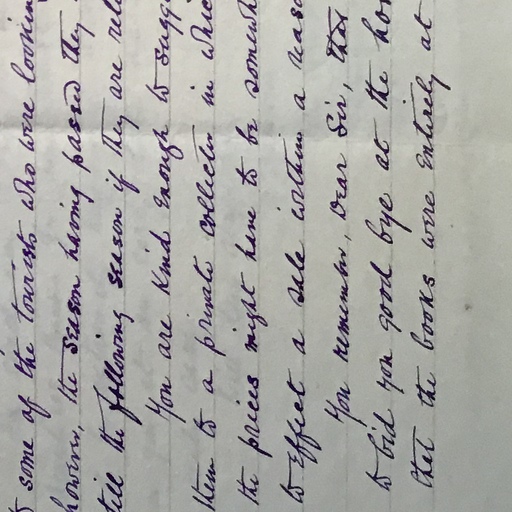 to some of the tourists who were looking
however, the season having passed they
till the following season if they are
You are kind enough to
them to a private collector in
the prices might have to be
to effect a sale within a
You remember, Dear Sir, that
to bid you good bye at the
that the books were entirely at